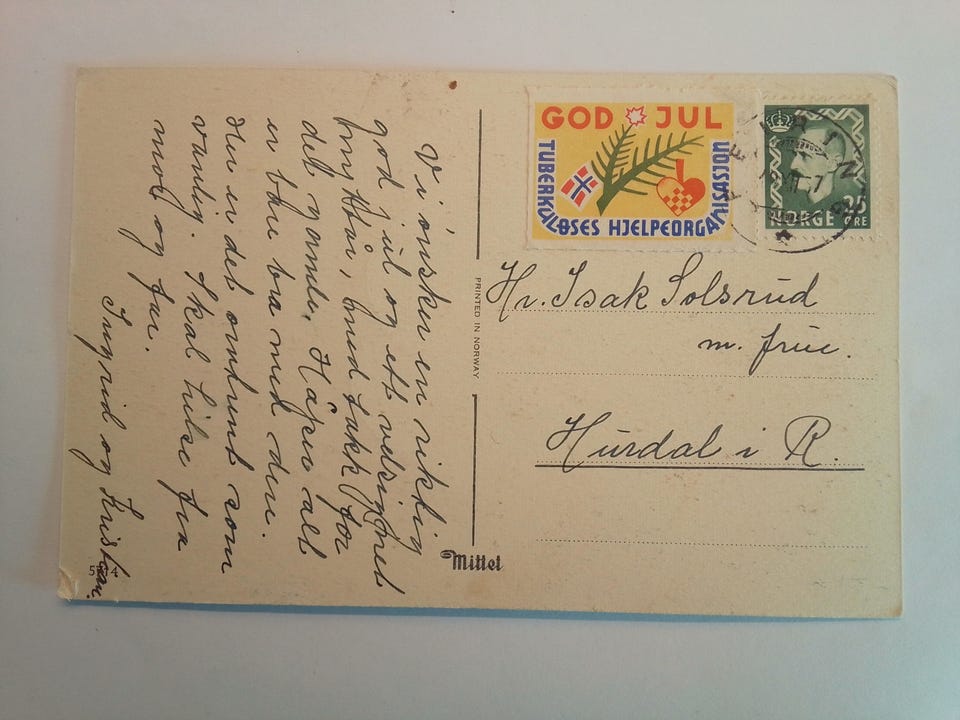 Vi ónsker en riktig
god jul og ett velsignet
med takk for
det gamle. Håper alt
er bare bra med dere.
Her er det omtrent som
vanlig. Skal hilse fra
mor og far.
Ingrid og Kristian.
5714
PRINTED IN NORWAY
Mittet
GOD JUL
TUBERKULØSES HJELPEORGANISASJON
NORGE 25
ØRE
Hr. Isak Solsrud
m. frue.
Hurdal i R.